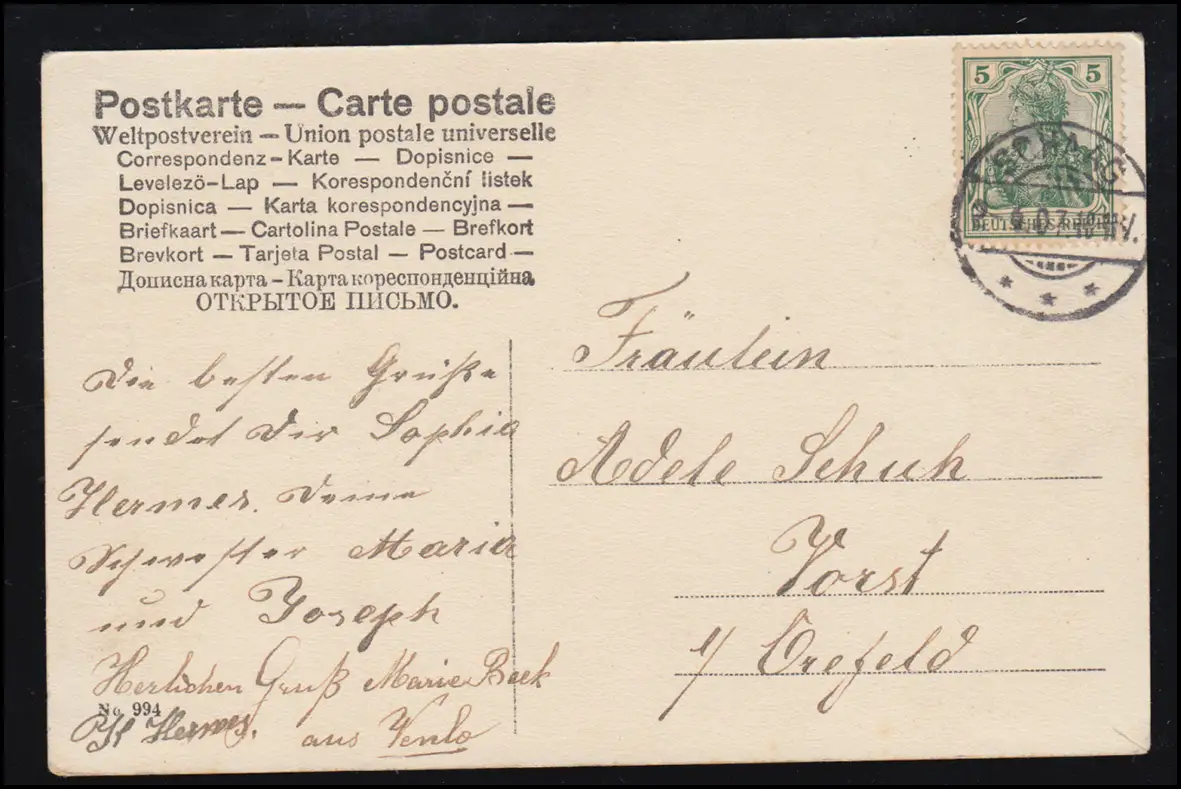 Postkarte — Carte postale
Weltpostverein – Union postale universelle
Correspondenz-Karte — Dopisnice —
Levelező-Lap — Korespondenční listek
Dopisnica — Karta korespondencyjna —
Briefkaart — Cartolina Postale — Brefkort
Brevkort — Tarjeta Postal — Postcard —
Дописна карта – Карта кореспонденційна
ОТКРЫТОЕ ПИСЬМО.
5 5
DEUTSCHES REICH
Die besten Grüße
sendet Dir Sophia
Hermes. Deine
Schwester Maria
und Joseph
Herlichen Gruß Marie Beek
No. 994
Hermes.
aus Venlo
Fräulein
Adele Schuh
Vorst
b/ Crefeld